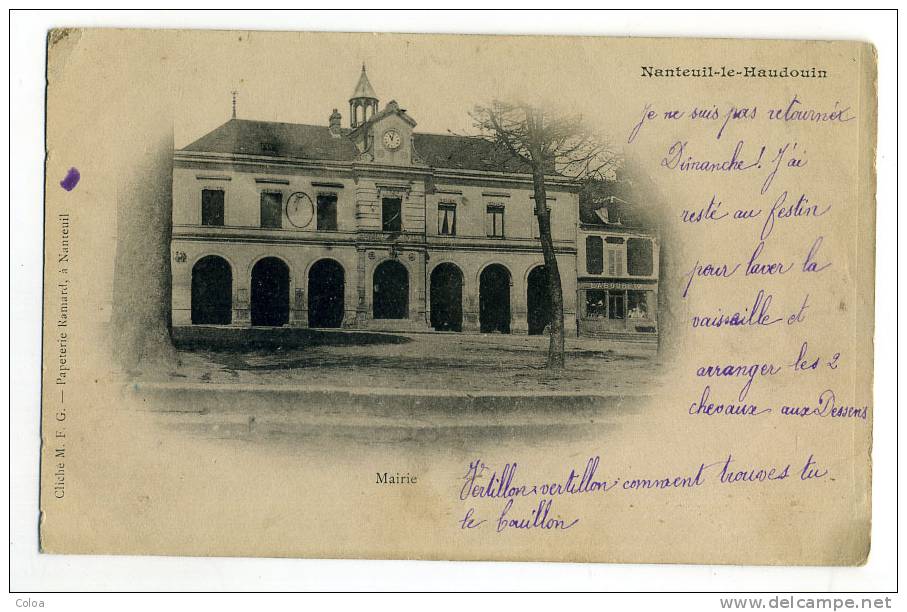 Nanteuil-le-Haudouin
Je ne suis pas retournéx
Dimanche! J'ai
resté au festin
pour laver la
vaisselle et
arranger les 2
chevaux aux Dessens
Vertillon, vertillon comment trouves tu
le bouillon
Mairie
Cliché M. F. G. — Papeterie Ramard, à Nanteuil
Coloa
www.delcampe.net